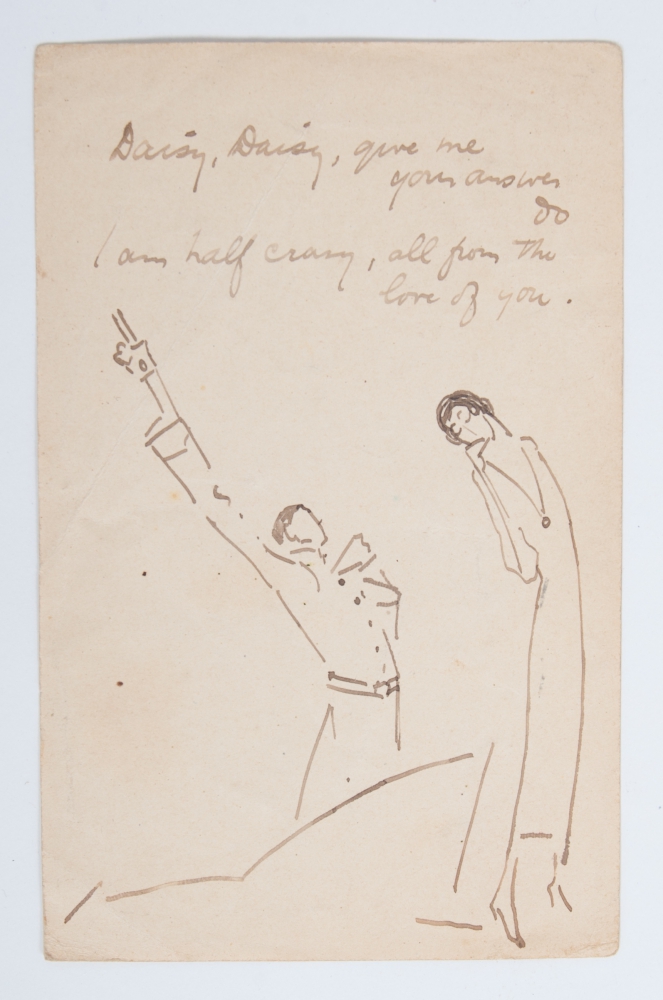 Daisy, Daisy, give me
your answer
do
I am half crazy, all from the
love of you.